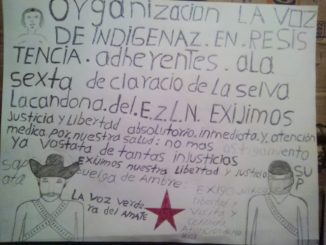 organización LA VOZ
DE INDIGENAZ. EN. RESIS
TENCIA. adherentes. ala
sexta de claracio de la selva
Lacandona. del. E.Z.L.N. EXIJIMOS
Justicia y Libertad absolutorio. inmediata. y. atención
medica. por. nuestra salud. no mas
ya Vastata de tantas injusticias
EXIJIMOS nuestra Libertad y Justicia
Huelga de Ambre.
SUP
LA VOZ verda
ra del AMATE
EXIGI
libertad y